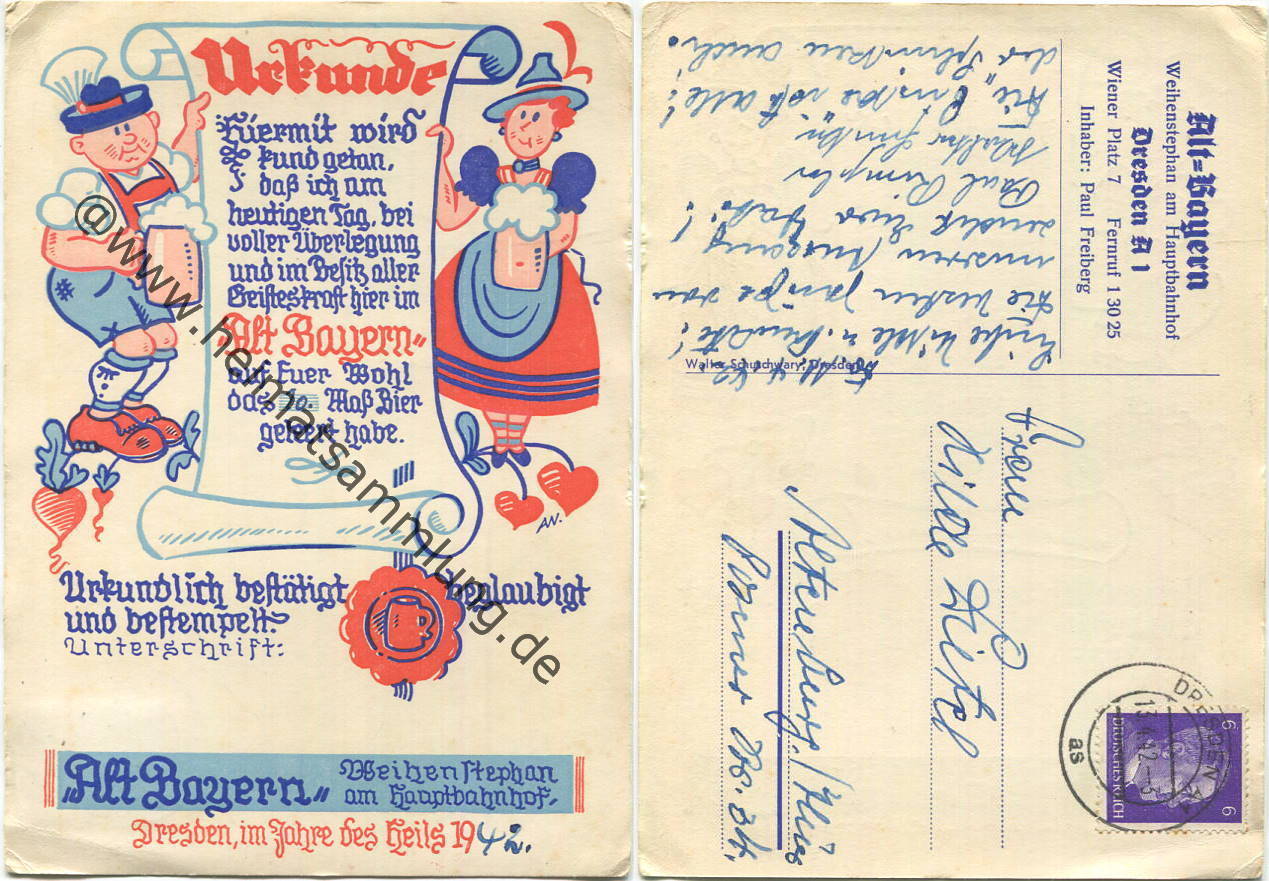 Urkunde
Hiermit wird
kund getan,
daß ich am
heutigen Tag, bei
voller Überlegung
und im Besitz aller
Geisteskraft hier im
„Alt Bayern“
auf Euer Wohl
das 10. Maß Bier
geleert habe.
AN.
Urkundlich bestätigt beglaubigt
und bestempelt.
Unterschrift:
„Alt Bayern“ Weihenstephan
am Hauptbahnhof.
Dresden, im Jahre des Heils 1942.
@www.heimatsammlung.de
Alt-Bayern
Weihenstephan am Hauptbahnhof
Dresden A 1
Wiener Platz 7 Fernruf 1 30 25
Inhaber: Paul Freiberg
Walter Schuschwary, Dresden
Die besten Grüße von
unserem Ausgang
sendet Euer
Paul
alle!
auch!
Frau
Hilde
Altenburg/Thür
Str.
DRESDEN A
13.4.42
as
6 6
DEUTSCHES REICH